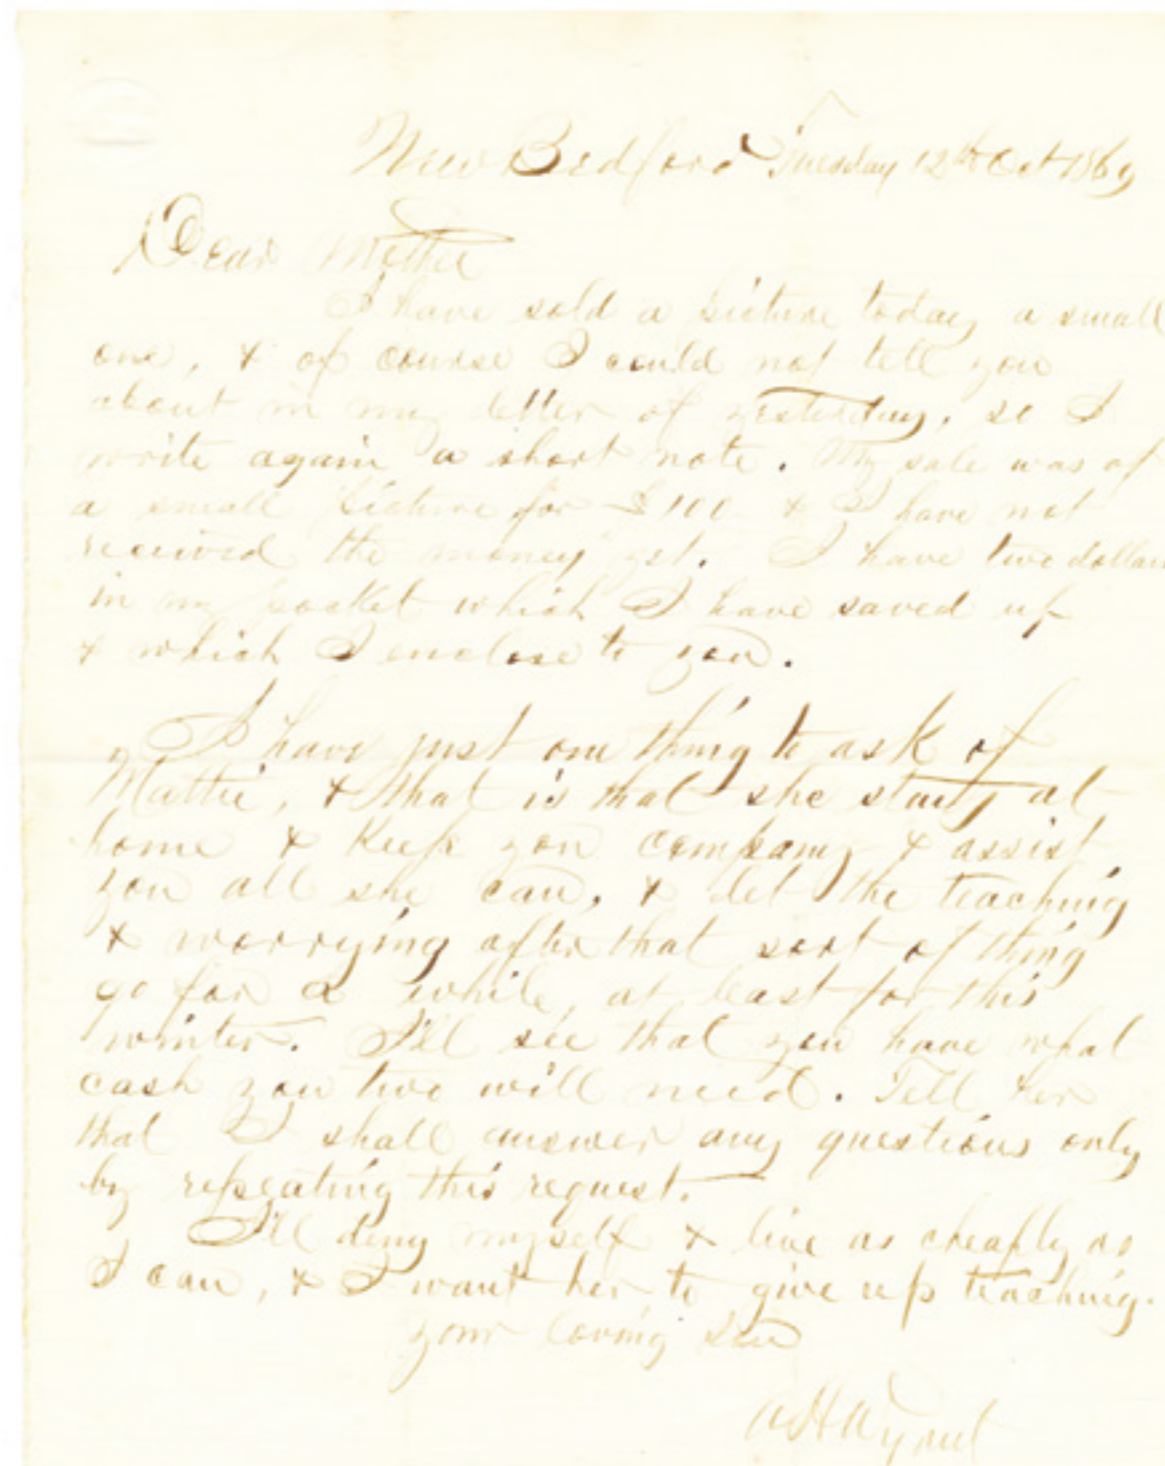 New Bedford Tuesday 12th Oct 1869
Dear Mother
I have sold a picture today a small
one, & of course I could not tell you
about in my letter of yesterday, so I
write again a short note. My sale was of
a small picture for $100 & I have not
received the money yet. I have two dollars
in my pocket which I have saved up
& which I enclose to you.
I have just one thing to ask of
Mattie, & that is that she stays at
home & keeps you company & assist
you all she can, & let the teaching
& worrying after that sort of thing
go for a while, at least for this
winter. I'll see that you have what
cash you two will need. Tell her
that I shall answer any questions only
by repeating this request.
I'll deny myself & live as cheaply as
I can, & I want her to give up teaching.
your loving Son